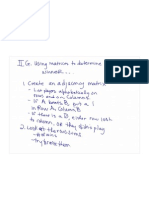 II Go. Using matrices to determine
winner...
1. Create an adjacency matrix
- List players alphabetically on
rows and on columns
- If A beats B, put a 1
in Row A, Column B
- If there is a 0, either row lost
to column, or they didn't play
2. Look at the row sums
- Explain
- Try
them